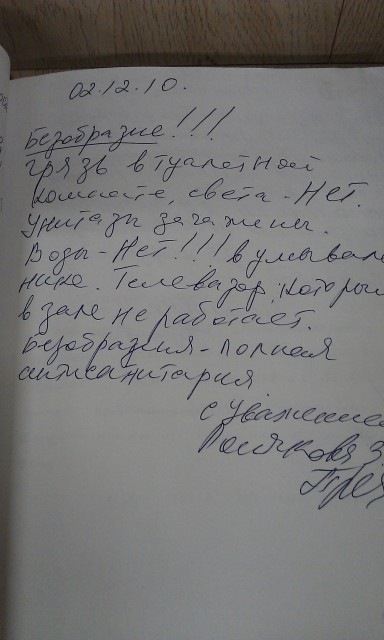 02.12.10.
Безобразие!!!
Грязь в туалетной
комнате, света - Нет.
Унитазы загажены.
Воды - Нет!!! в умываль
нике. Телевизор, который
в зале не работает.
Безобразия - полная
антисанитария.
с уважение